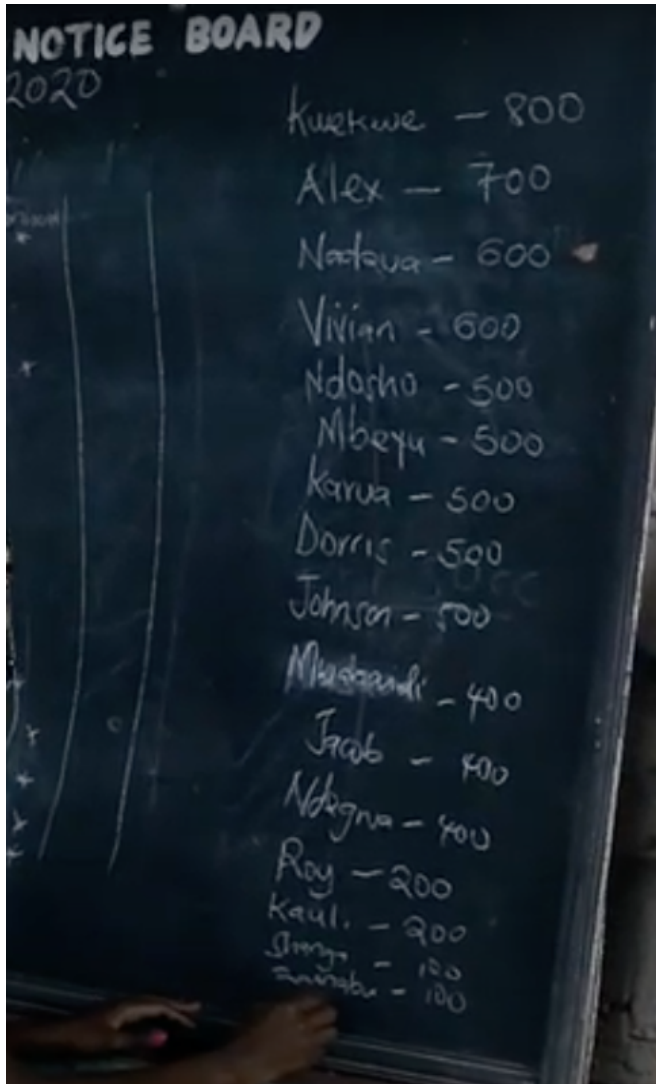 NOTICE BOARD
2020
Kwekwe - 800
Alex - 700
Nadzua - 600
Vivian - 600
Ndosho - 500
Mbeyu - 500
Karua - 500
Dorris - 500
Johnson - 500
- 400
Jacob - 400
Ndegwa - 400
Roy - 200
Kauli. - 200
- 100
- 100